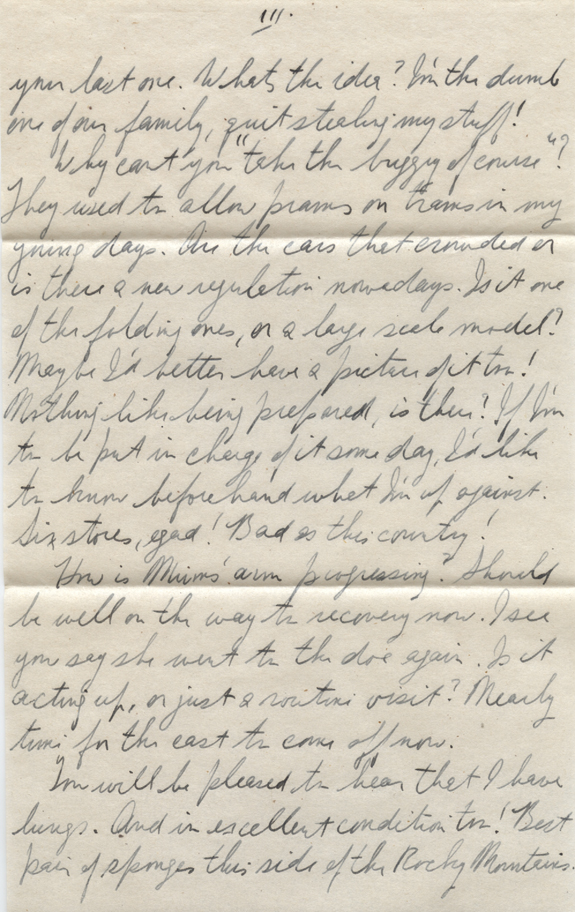 III.
your last one. What's the idea? I'm the dumb
one of our family, quit stealing my stuff!
Why can't you "take the buggy of course"?
They used to allow prams on trams in my
young days. Are the cars that crowded or
is there a new regulation nowadays. Is it one
of the folding ones, or a large scale model?
Maybe I'd better have a picture of it too!
Nothing like being prepared, is there? If I'm
to be put in charge of it some day, I'd like
to know beforehand what I'm up against.
Six stores, egad! Bad as this country!
How is Mum's arm progressing? Should
be well on the way to recovery now. I see
you say she went to the doc again. Is it
acting up, or just a routine visit? Nearly
time for the cast to come off now.
You will be pleased to hear that I have
lungs. And in excellent condition too! Best
pair of sponges this side of the Rocky Mountains.